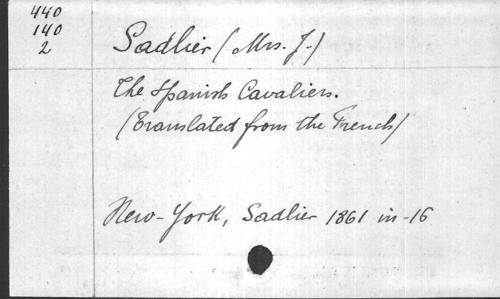 440
140
2
Sadlier (Mrs. J.)
The Spanish Cavaliers.
(Translated from the French)
New-York, Sadlier 1861 in-16